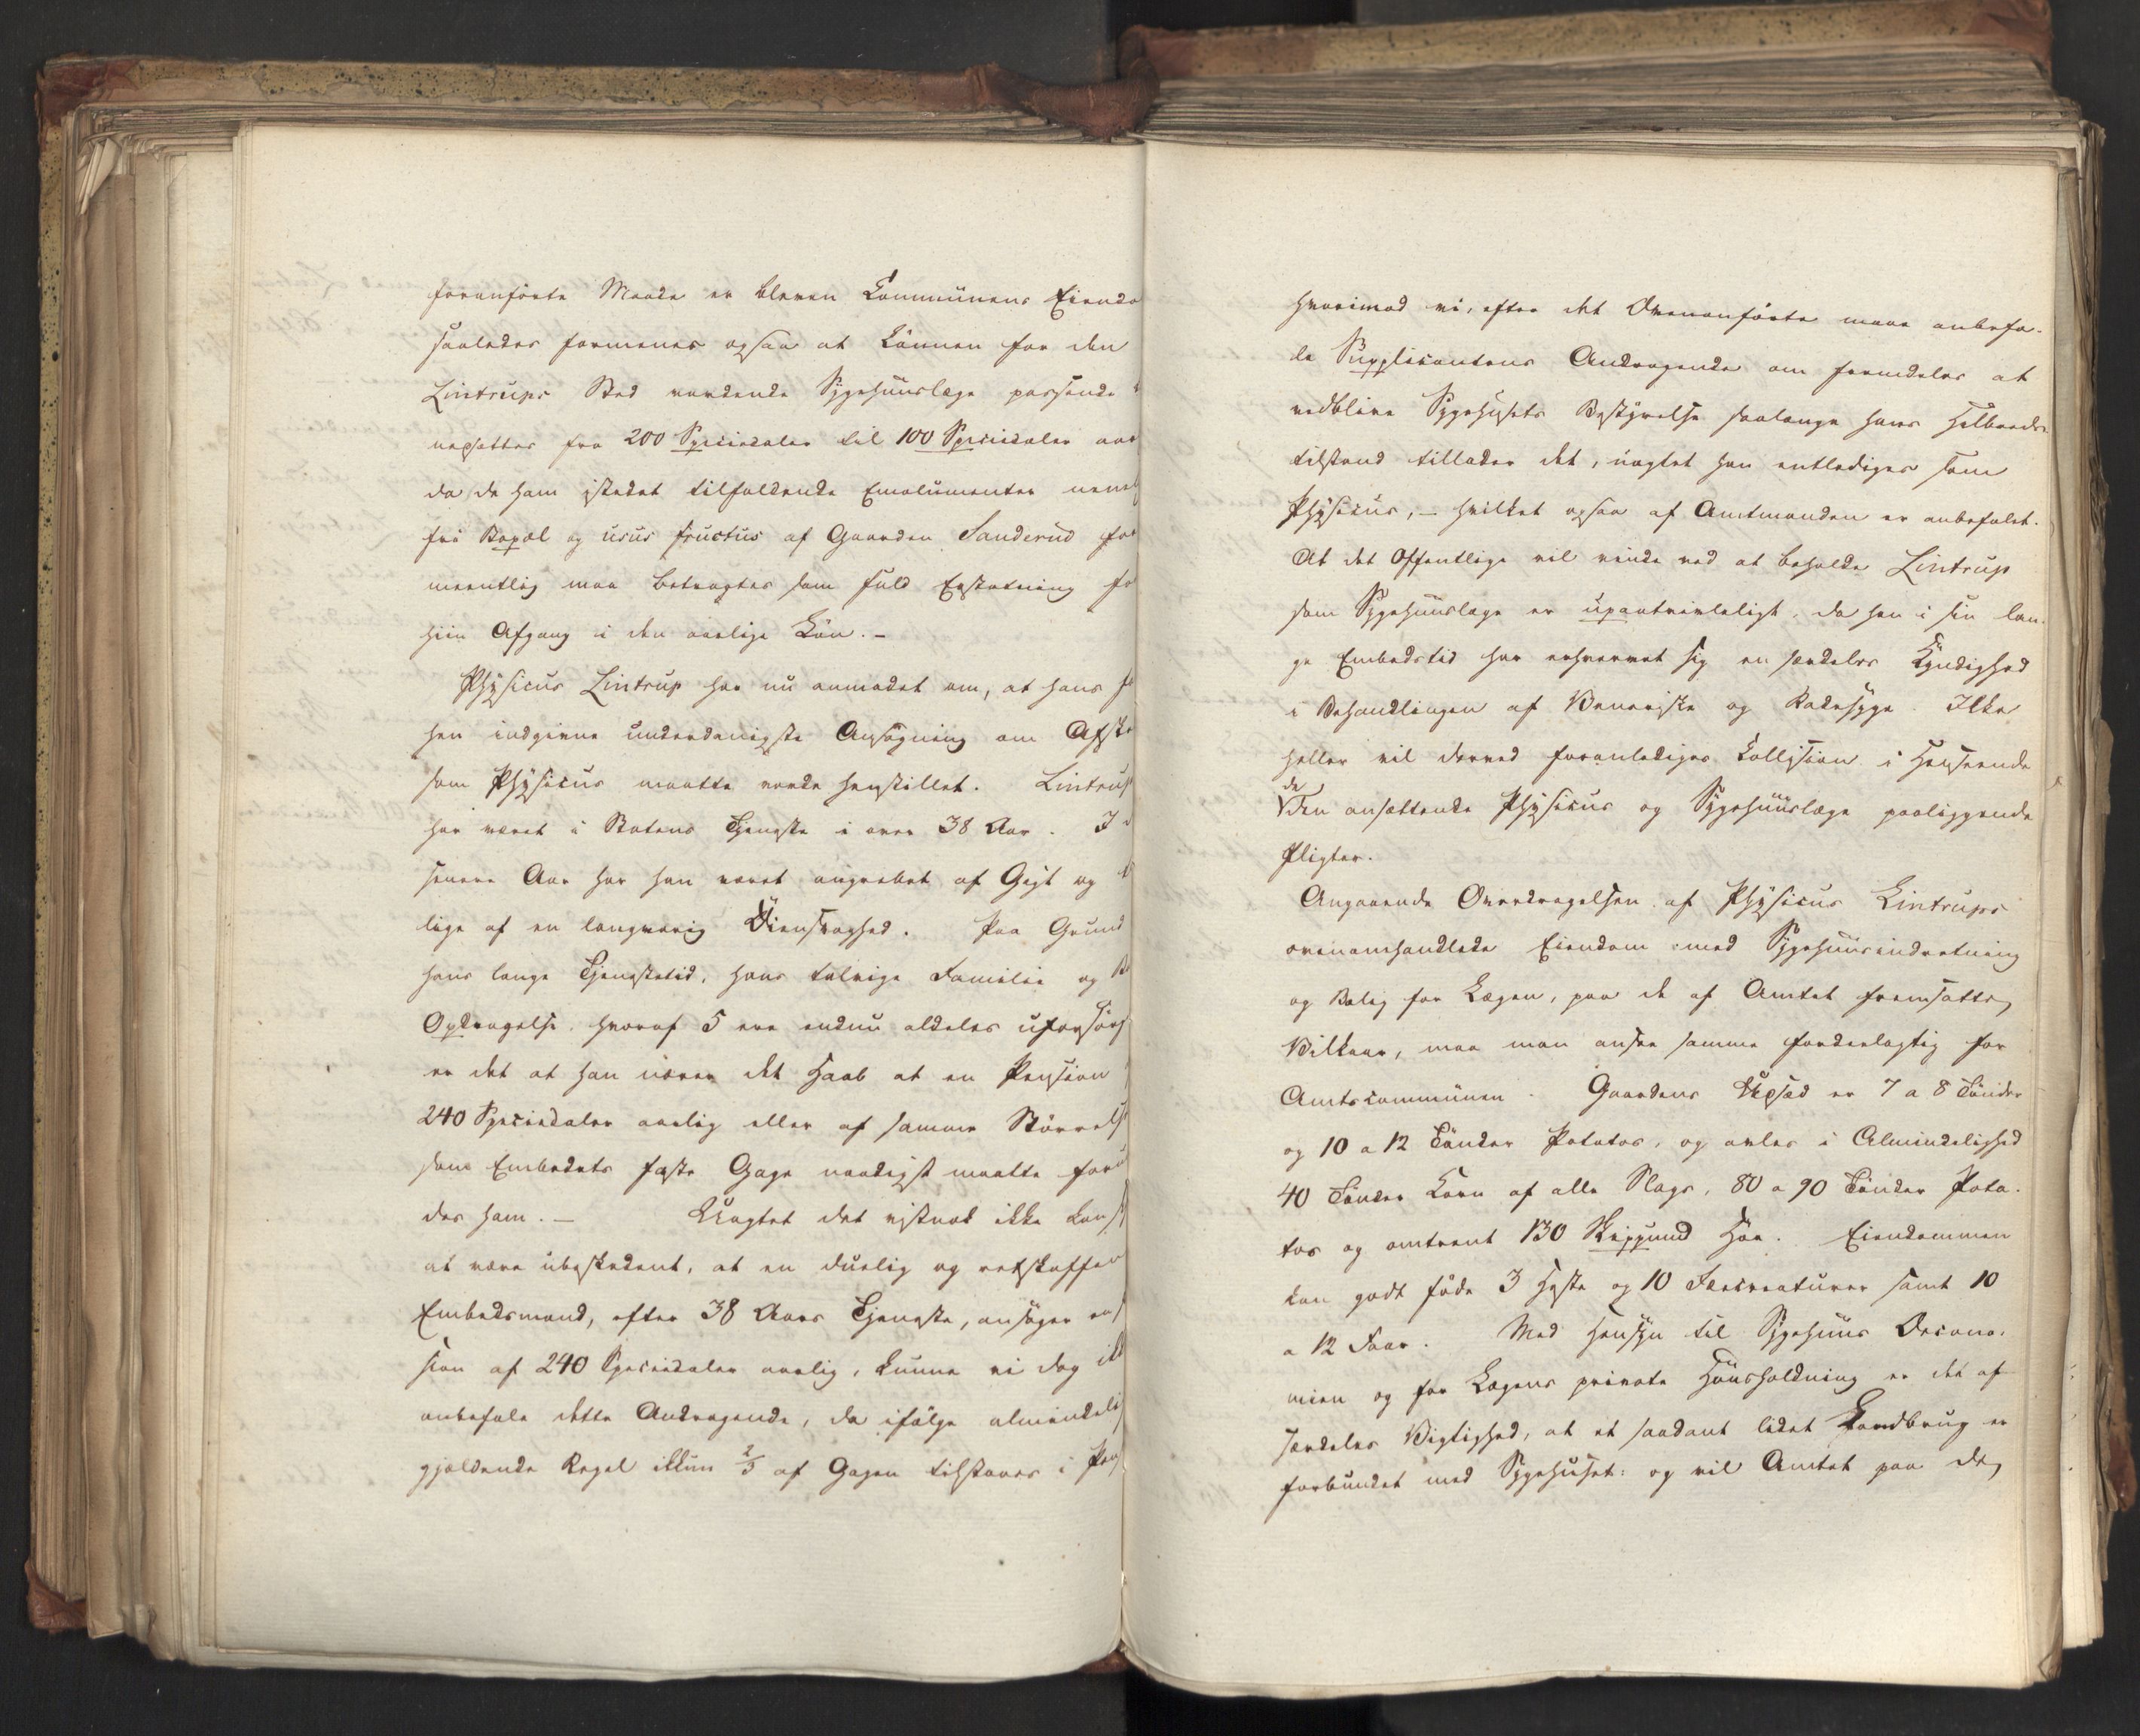 foranførte Maade er bleven Communens Eiendo
saaledes formenes ogsaa at Lønnen for den
Lintrups Sted vordende Sygehuuslæge passende
nedsættes fra 200 Speciedaler til 100 Speciedaler aar
da de ham istedet tilfaldende Emolumenter neml
fri Bopæl og usus fructus af Gaarden Sanderud for
meentlig maa betragtes som fuld Erstatning fo
hiin Afgang i den aarlige Løn. -
Physicus Lintrup har nu anmodet om, at hans f
hen indgivne underdanigste Ansøgning om Afske
som Physicus maatte vorde henstillet. Lintrup
har været i Statens Tjeneste i over 38 Aar. I
senere Aar har han været angrebet af Gigt og
lige af en langvarig Øiensvaghed. Paa Grund
hans lange Tjenestetid, hans talrige Familie og
Opdragelse, hvoraf 5 ere endnu aldeles uforsørg
er det at han nærer det Haab at en Pension
240 Speciedaler aarlig eller af samme Størrels
som Embedets faste Gage naadigst maatte forun
des ham. - Uagtet det vistnok ikke kan s
at være ubeskedent, at en duelig og retskaffen
Embedsmand, efter 38 Aars Tjeneste, ansøger
sion af 240 Speciedaler aarlig, kunne vi dog ikk
anbefale dette Andragende, da ifølge almindelig
gjældende Regel ikkun 2/3 af Gagen tilstaaes i Pen
hvorimod vi, efter det Ovenanførte maae anbefa-
le Supplicantens Andragende om fremdeles at
vedblive Sygehusets Bestyrelse saalænge hans Helbreds-
tilstand tillader det, uagtet han entlediges som
Physicus, - hvilket ogsaa af Amtmanden er anbefalet.
At det Offentlige vil vinde ved at beholde Lintrup
som Sygehuuslæge er upaatvivleligt, da han i sin lan-
ge Embedstid har erhvervet sig en særdeles Kyndighed
i Behandlingen af Veneriske og Radesyge. Ikke
heller vil derved foranlediges Collision i Henseende
de
Den ansættende Physicus og Sygehuuslæge paaliggende
Pligter.
Angaaende Overdragelsen af Physicus Lintrups
ovenomhandlede Eiendom med Sygehuusindretning
og Bolig for Lægen, paa de af Amtet fremsatte
Vilkaar, maa man ansee samme fordeelagtig for
Amtscommunen. Gaardens Udsæd er 7 a 8 Tønder
og 10 a 12 Tønder Potatos, og avles i Almindelighed
40 Tønder Korn af alle Slags, 80 a 90 Tønder Pota-
tos og omtrent 130 Skippund Høe. Eiendommen
kan godt føde 3 Heste og 10 Fæecreaturer samt 10
a 12 Faar. Med Hensyn til Sygehuus Oecono-
mien og for Lægens private Huusholdning er det af
særdeles Vigtighed, at et saadant lidet Landbrug er
forbundet med Sygehuset: og vil Amtet paa de